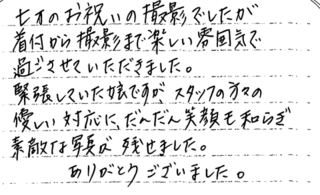 七才のお祝いの撮影でしたが
着付から撮影まで楽しい雰囲気で
過ごさせていただきました。
緊張していた娘ですが、スタッフの方々の
優しい対応に、だんだん笑顔も和らぎ
素敵な写真が残せました。
ありがとうございました。